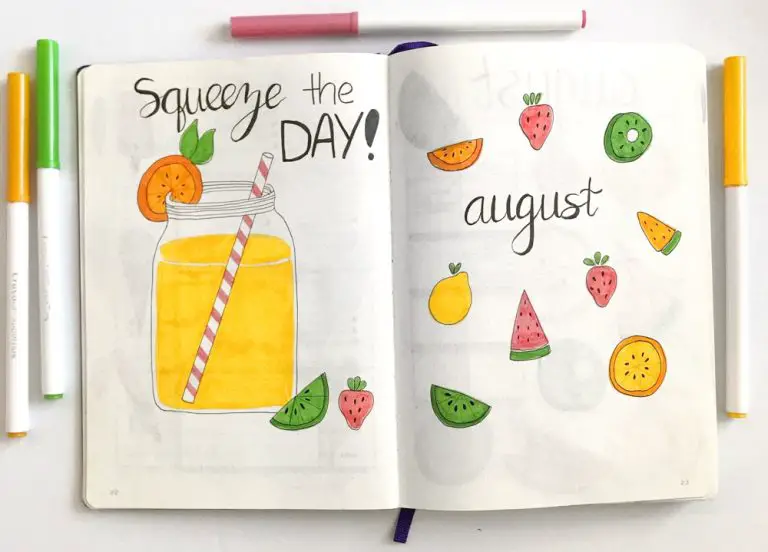 Squeeze the
DAY!
august
22
23